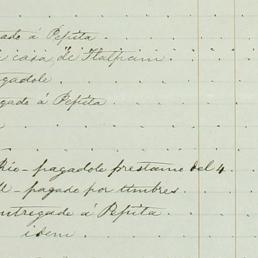 ado á Pepita.
casa de Tlalpam.
gadole.
gado á Pepita
Rio - pagadole prestamo del 4.
pagado por timbres.
entregado á Pepita.
idem.